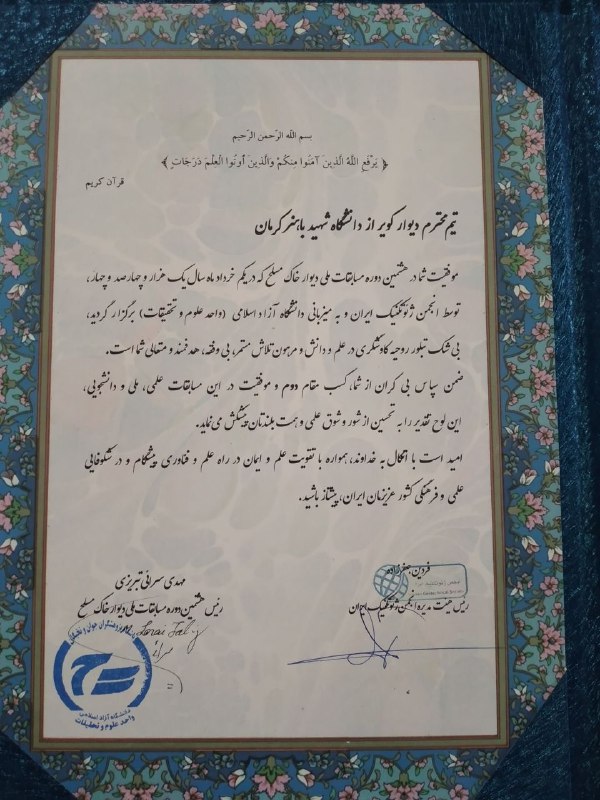 بسم الله الرحمن الرحیم
﴿ يَرْفَعِ اللَّهُ الَّذِينَ آمَنُوا مِنكُمْ وَالَّذِينَ أُوتُوا الْعِلْمَ دَرَجَاتٍ ﴾
قرآن کریم
تیم محترم دیوار کویر از دانشگاه شهید باهنر کرمان
موفقیت شما در هشتمین دوره مسابقات ملی دیوار خاک مسلح که در یکم خرداد ماه سال یک هزار و چهارصد و چهار،
توسط انجمن ژئوتکنیک ایران و به میزبانی دانشگاه آزاد اسلامی (واحد علوم و تحقیقات) برگزار گردید،
بی شک تبلور روحیه کاوشگری در علم و دانش و مرهون تلاش مستمر، بی وقفه، هدفمند و متعالی شما است.
ضمن سپاس بی کران از شما، کسب مقام دوم و موفقیت در این مسابقات علمی، ملی و دانشجویی،
این لوح تقدیر را به تحسین از شور و شوق علمی و همت بلندتان پیشکش می نماید.
امید است با اتکال به خداوند، همواره با تقویت علم و ایمان در راه علم و فناوری پیشگام و در شکوفایی
علمی و فرهنگی کشور عزیزمان ایران، پیشتاز باشید.
فردین جعفرزاده
رئیس هیئت مدیره انجمن ژئوتکنیک ایران
مهدی سرائی تبریزی
رئیس هشتمین دوره مسابقات ملی دیوار خاک مسلح
دانشگاه آزاد اسلامی
واحد علوم و تحقیقات